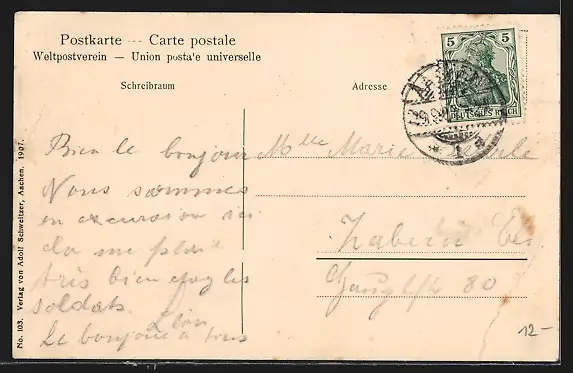 Postkarte --- Carte postale
Weltpostverein — Union posta'e universelle
Schreibraum
Adresse
5 5
DEUTSCHES REICH
AACHEN
* 1 a
No. 103. Verlag von Adolf Schweitzer, Aachen. 1907.
Bien le bonjour
Nous sommes
en excursion ici
très bien
soldats.
Léon
Le bonjour à tous
Mlle Marie
Zabern Els.
80
12-